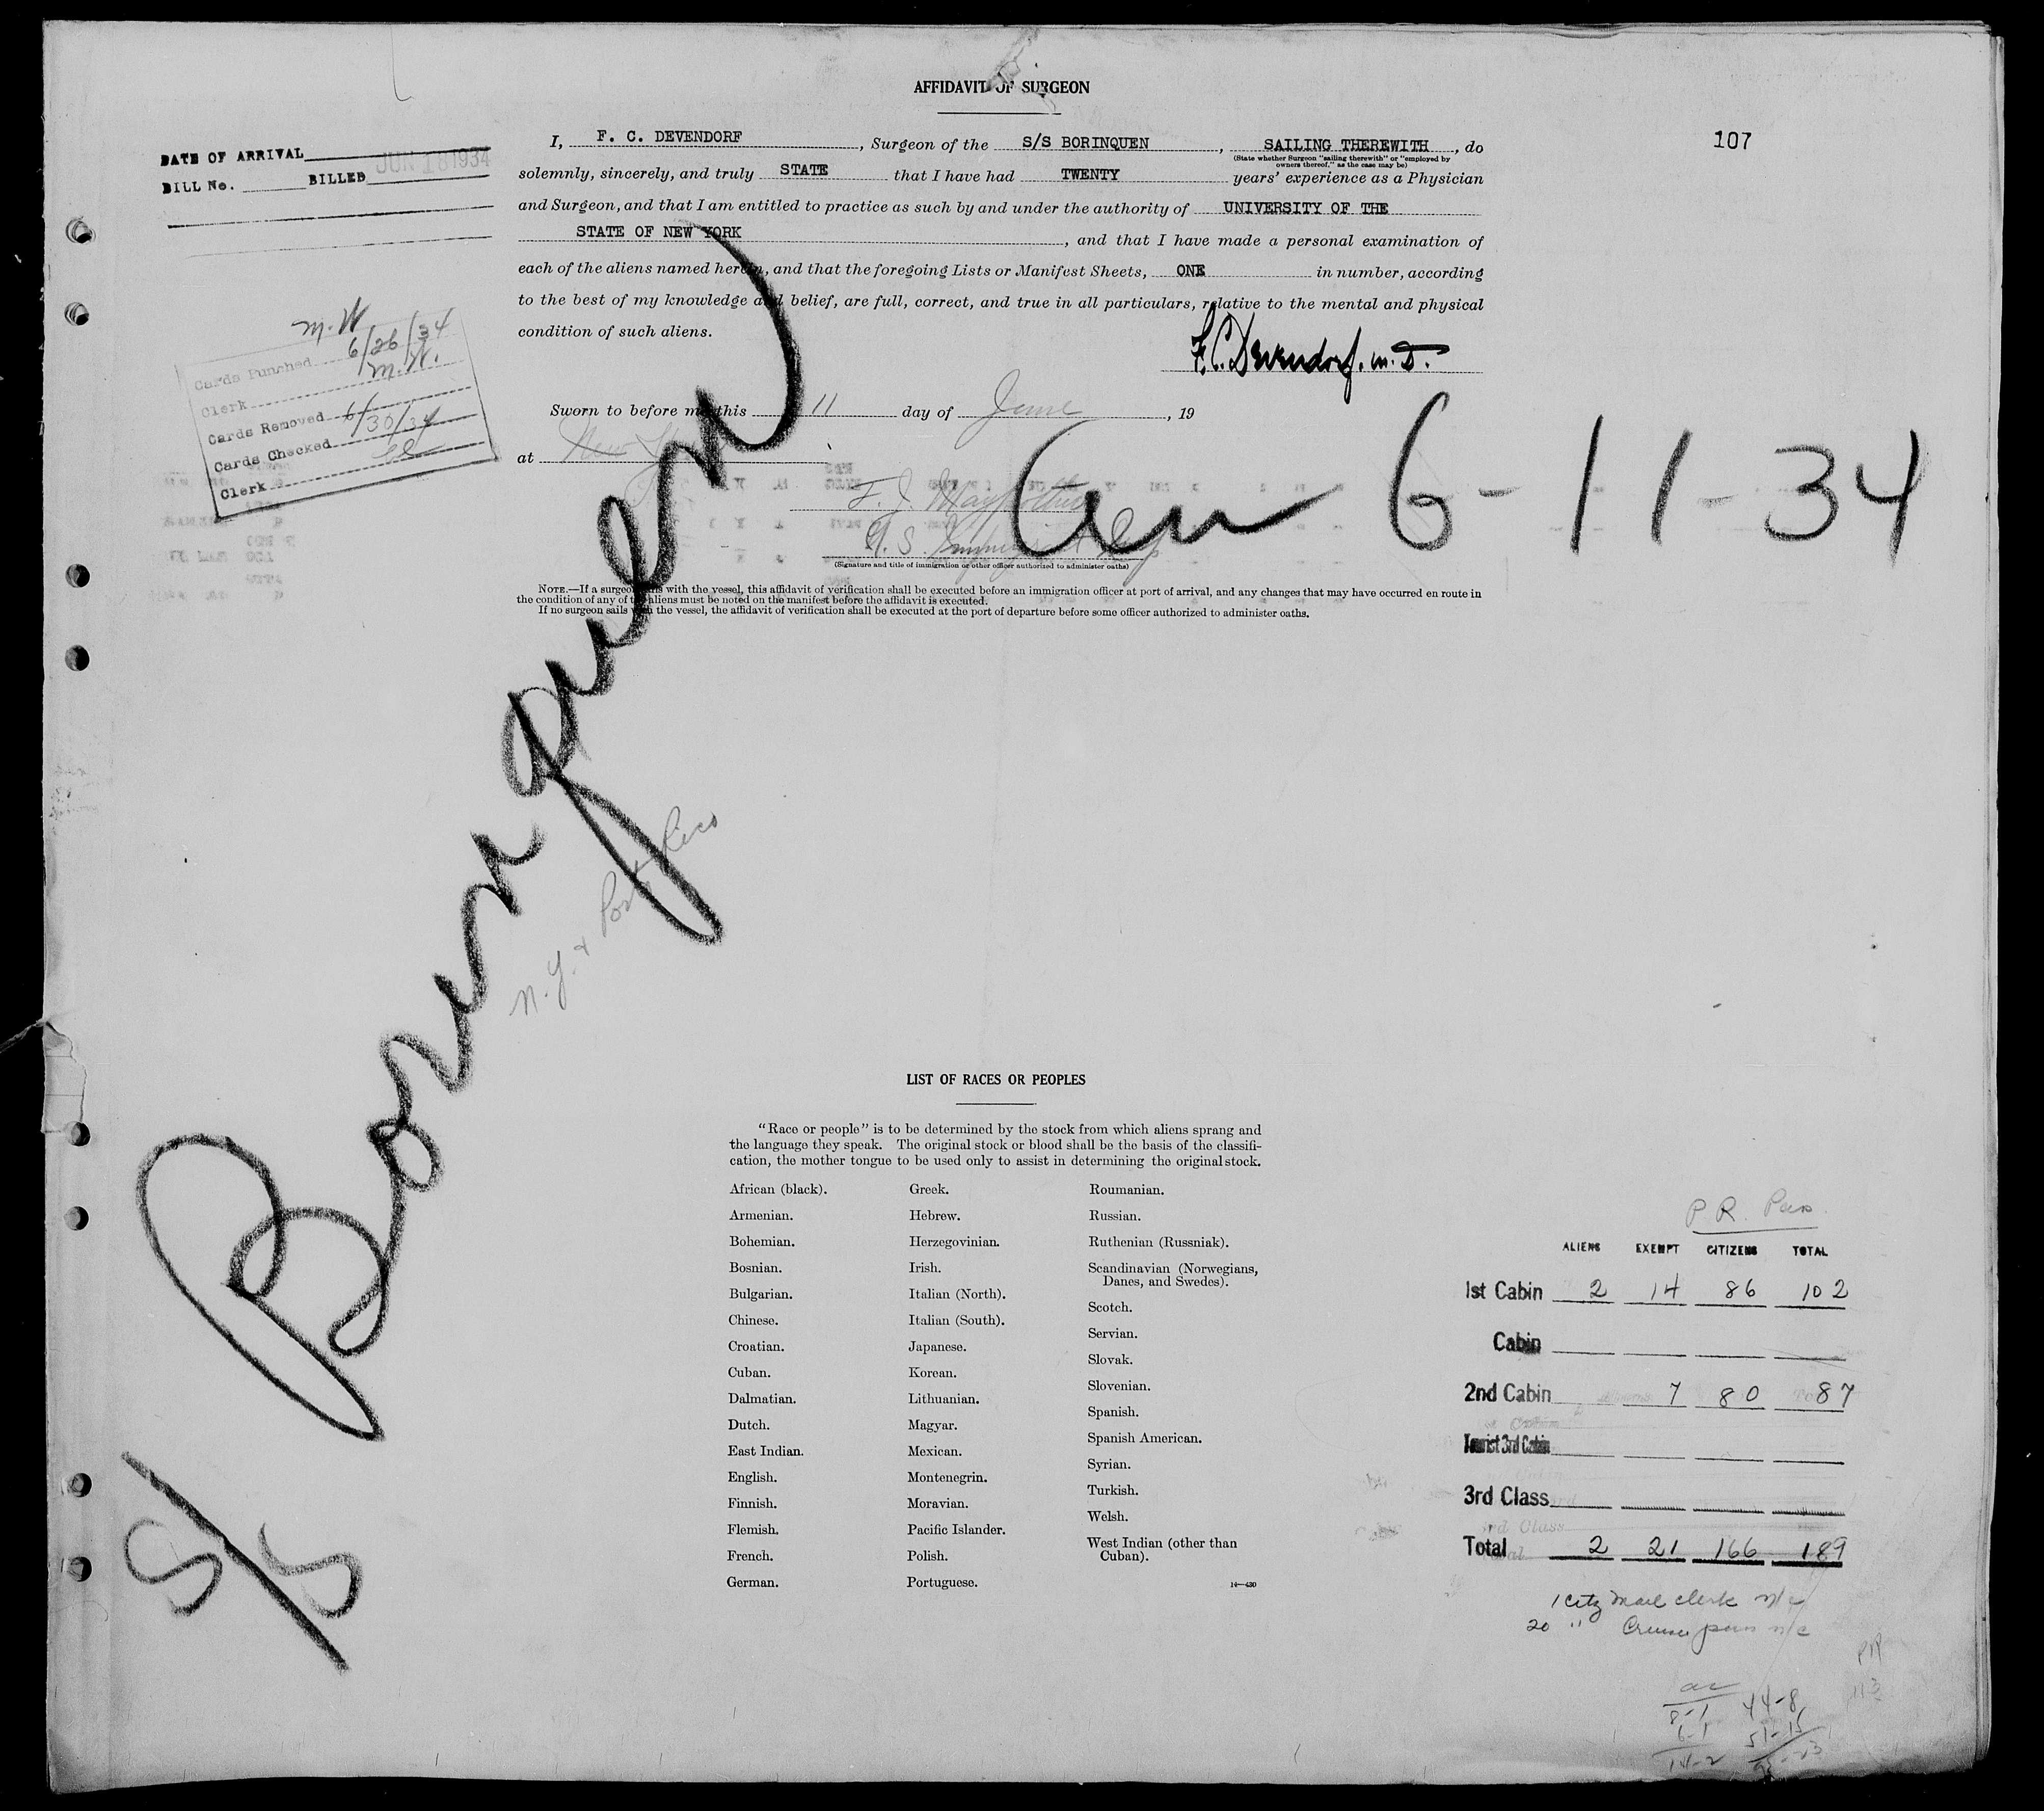 AFFIDAVIT OF SURGEON
107
DATE OF ARRIVAL
BILL No. BILLED JUN 18 1934
I, F. C. DEVENDORF, Surgeon of the S/S BORINQUEN, SAILING THEREWITH, do
(State whether Surgeon "sailing therewith" or "employed by
owners thereof," as the case may be)
solemnly, sincerely, and truly STATE that I have had TWENTY years' experience as a Physician
and Surgeon, and that I am entitled to practice as such by and under the authority of UNIVERSITY OF THE
STATE OF NEW YORK, and that I have made a personal examination of
each of the aliens named herein, and that the foregoing Lists or Manifest Sheets, ONE in number, according
to the best of my knowledge and belief, are full, correct, and true in all particulars, relative to the mental and physical
condition of such aliens.
F.C. Devendorf. M.D.
M.W
Cards Punched 6/26/34
Clerk M.W.
Cards Removed 6/30/34
Cards Checked
Clerk
Sworn to before me this 11 day of June, 19
at New York
F. J. 
U. S.
(Signature and title of immigration or other officer authorized to administer oaths)
6-11-34
NOTE.—If a surgeon sails with the vessel, this affidavit of verification shall be executed before an immigration officer at port of arrival, and any changes that may have occurred en route in
the condition of any of the aliens must be noted on the manifest before the affidavit is executed.
If no surgeon sails with the vessel, the affidavit of verification shall be executed at the port of departure before some officer authorized to administer oaths.
S/S Borinquen
N.Y. & Porto Rico
LIST OF RACES OR PEOPLES
"Race or people" is to be determined by the stock from which aliens sprang and
the language they speak. The original stock or blood shall be the basis of the classifi-
cation, the mother tongue to be used only to assist in determining the original stock.
African (black).
Armenian.
Bohemian.
Bosnian.
Bulgarian.
Chinese.
Croatian.
Cuban.
Dalmatian.
Dutch.
East Indian.
English.
Finnish.
Flemish.
French.
German.
Greek.
Hebrew.
Herzegovinian.
Irish.
Italian (North).
Italian (South).
Japanese.
Korean.
Lithuanian.
Magyar.
Mexican.
Montenegrin.
Moravian.
Pacific Islander.
Polish.
Portuguese.
Roumanian.
Russian.
Ruthenian (Russniak).
Scandinavian (Norwegians,
Danes, and Swedes).
Scotch.
Servian.
Slovak.
Slovenian.
Spanish.
Spanish American.
Syrian.
Turkish.
Welsh.
West Indian (other than
Cuban).
14—430
P R. Pass
ALIENS EXEMPT CITIZENS TOTAL
1st Cabin 2 14 86 102
Cabin
2nd Cabin 7 80 87
Tourist 3rd Cabin
3rd Class
Total 2 21 166 189
1 Citz Mail clerk n/c
20 " Cruise pass n/c
PR
113
8-1 44-8
6-1 51-15
14-2 95-23